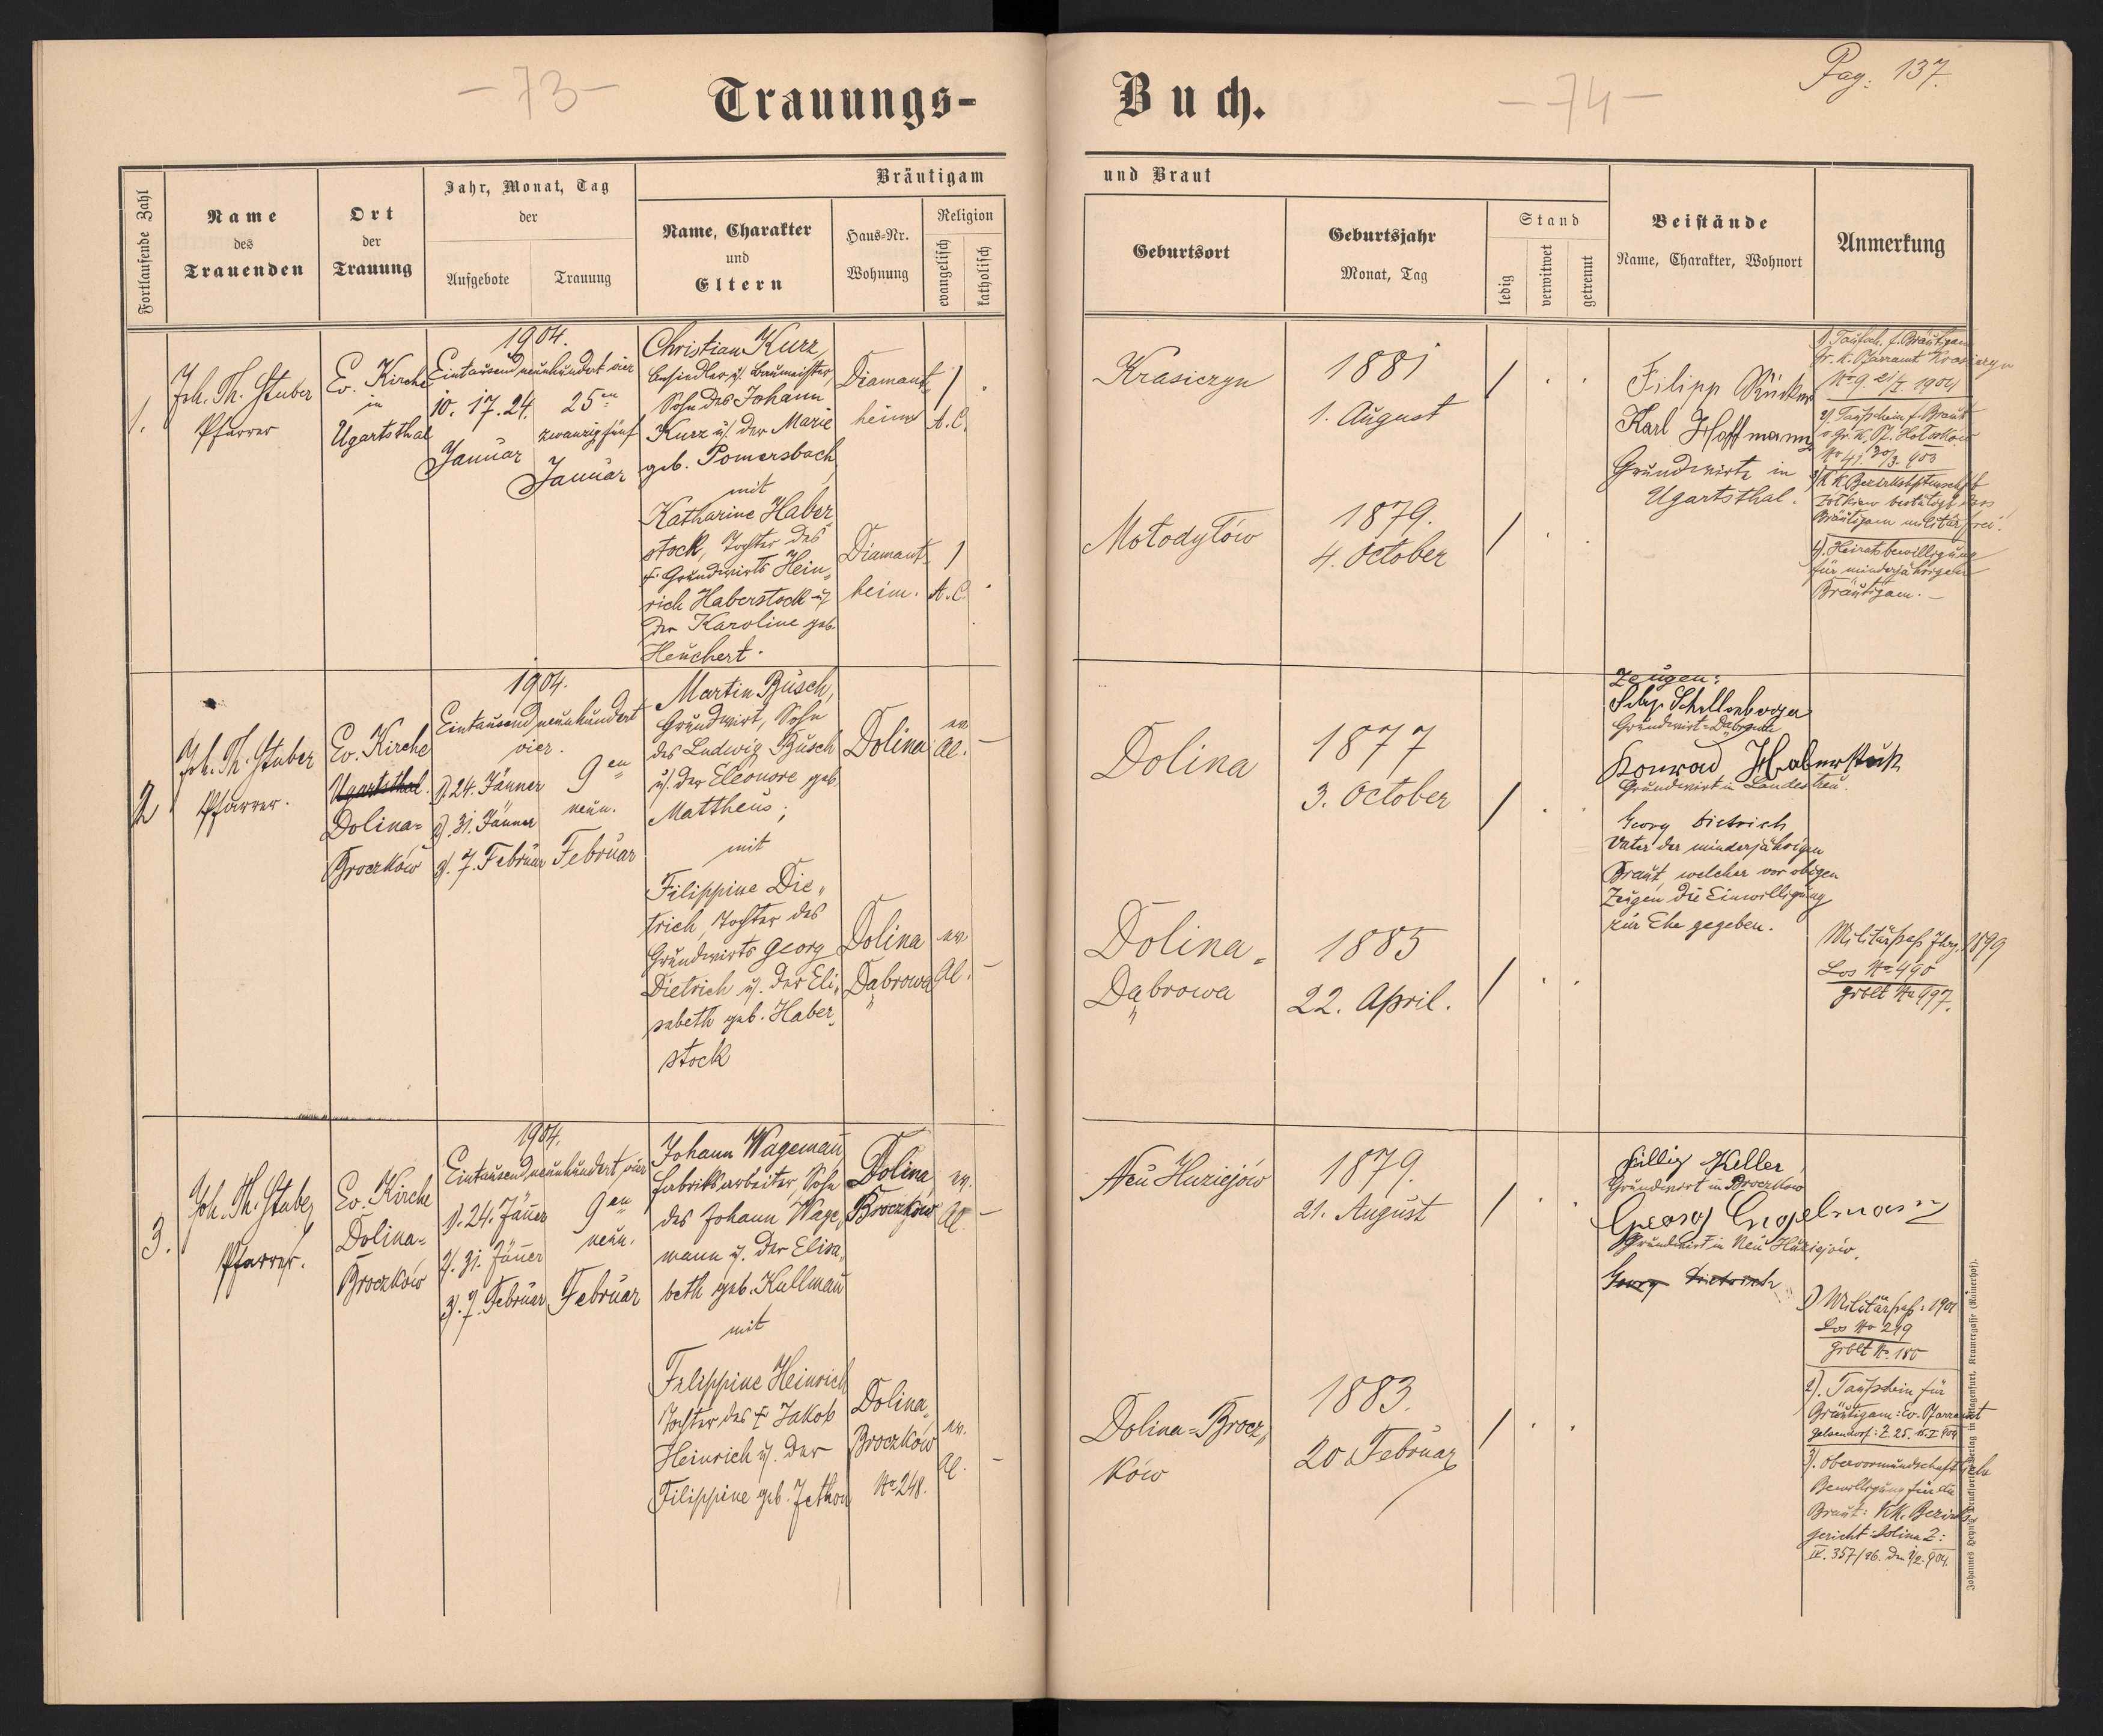 – 73 –
Trauungs-
Buch.
– 74 –
Pag: 137.
Fortlaufende Zahl
Name
des
Trauenden
Ort
der
Trauung
Jahr, Monat, Tag
der
Aufgebote
Trauung
Bräutigam
Name, Charakter
und
Eltern
Haus-Nr.
Wohnung
Religion
evangelisch
katholisch
und Braut
Geburtsort
Geburtsjahr
Monat, Tag
Stand
ledig
verwitwet
getrennt
Beistände
Name, Charakter, Wohnort
Anmerkung
1.
Joh. Th. Stuber
Pfarrer
Ev. Kirche
in
Ugartsthal
1904.
Eintausend neunhundert vier
10. 17. 24.
Januar
25en
zwanzig fünf
Januar
Christian Kurz,
Ansiedler u. Baumeister
Sohn des Johann
Kurz u. der Marie
geb. Pomersbach
mit
Katharine Haber-
stock, Tochter des
† Grundwirts Hein-
rich Haberstock u.
der Karoline geb.
Heuchert.
Diamant-
heim
/
A. C.
Diamant-
heim.
/
A. C.
Krasiczyn
1881
1. August
/
Mołodyłów
1879.
4. October
/
Filipp Rücker
Karl Hoffmann
Grundwirte in
Ugartsthal.
1) Taufsch. f. Bräutigam
Gr. K. Pfarramt Krasiczyn
No 9. 21/I. 1904
2) Taufschein f. Braut
No 41. 30/3. 903
3) K. K. Bezirkshptmschft
Żółkiew bestätigt dass
Bräutigam militärfrei.
4). Heiratsbewilligung
für minderjährigen
Bräutigam. –
2
Joh. Th. Stuber
Pfarrer.
Ev. Kirche
Ugartsthal.
Dolina-
Broczków
1904.
Eintausend neunhundert
vier.
1). 24. Jänner
2). 31. Jänner
3). 7. Februar
9en
neun.
Februar
Martin Busch,
Grundwirt, Sohn
des Ludwig Busch
u. der Eleonore geb.
Mattheus;
mit
Filippine Die-
trich, Tochter des
Grundwirts Georg
Dietrich u. der Eli-
sabeth geb. Haber-
stock
Dolina
ev.
AC. –
Dolina
Dąbrowa
ev.
AC. –
Dolina
1877
3. October
/
Dolina-
Dąbrowa
1885
22. April.
/
Zeugen:
Schellenberger
Grundwirt-Dąbrowa
Konrad Haberstock
Grundwirt in Landestreu.
Georg Dietrich
Vater der minderjährigen
Braut, welcher vor obigen
Zeugen die Einwilligung
zur Ehe gegeben.
Militärpaß Jhrg. 1899
Los No 490
grblt No 997.
3.
Joh. Th. Stuber
Pfarrer.
Ev. Kirche
Dolina-
Broczków
1904.
Eintausend neunhundert vier
1). 24. Jäner
2). 31. Jäner
3). 7. Februar
9en
neun.
Februar
Johann Wagemañ
Fabriksarbeiter, Sohn
des Johann Wage-
mann u. der Elisa-
beth geb. Kullmañ
mit
Filippine Heinrich
Tochter des † Jakob
Heinrich u. der
Filippine geb. Jethon
Dolina
Broczków
ev.
AC. –
Dolina
Broczków
No 248.
ev.
AC. –
Neu Huziejów
1879.
21. August
/
Dolina-Brocz-
ków
1883.
20 Februar
/
Fillip Keller
Grundwirt in Broczków
Georg Engelmann
Grundwirt in Neu Huziejów.
Georg Dietrich
1) Militärpaß: 1901
Los No 219
grblt No. 180
2). Taufschein für
Bräutigam: Ev. Pfarramt
Gelsendorf: Z. 25. 15. I. 904
3). Obervormundschaftliche
Bewilligung für die
Braut: KK. Bezirks-
gericht: Dolina Z:
IV. 357/96. den 1/2. 904.
Johannes Heyn's Drucksorten-Verlag in Klagenfurt, Kramergasse (Rainerhof).